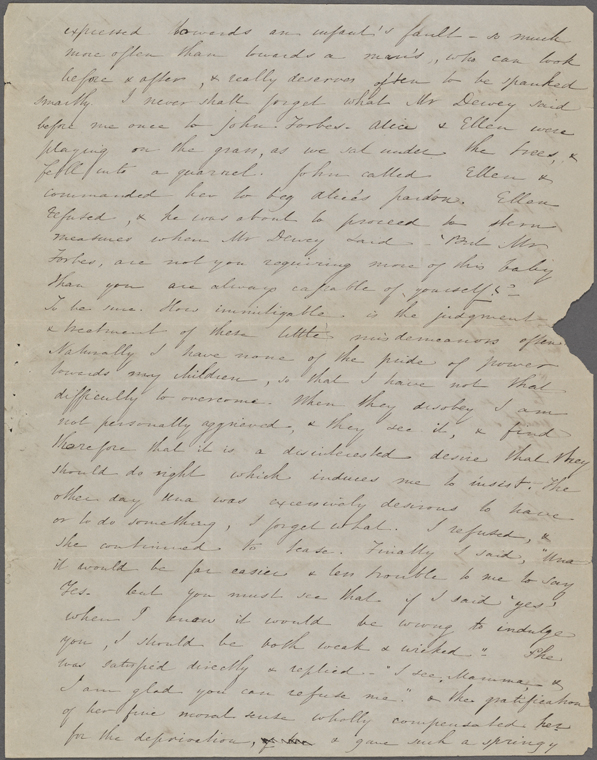 expressed towards an infant's fault – so much
more often than towards a man's, who can look
before & after, & really deserves often to be spanked
smartly. I never shall forget what Mr Dewey said
before me once to John Forbes. Alice & Ellen were
playing on the grass, as we sat under the trees, &
fell into a quarrel. John called Ellen &
commanded her to beg Alice's pardon. Ellen
refused, & he was about to proceed to stern
measures when Mr Dewey said – "But Mr
Forbes, are not you requiring more of this baby
than you are always capable of yourself?" –
To be sure. How immitigable is the judgment
& treatment of these little misdemeanors often
Naturally I have none of the pride of power
towards my children, so that I have not that
difficulty to overcome. When they disobey I am
not personally aggrieved, & they see it, & find
therefore that it is a disinterested desire that they
should do right which induces me to insist. The
other day Una was excessively desirous to have
or to do something, I forget what. I refused, &
she continued to tease. Finally I said, "Una
it would be far easier & less trouble to me to say
Yes. but you must see that if I said 'yes'
when I know it would be wrong to indulge
you, I should be both weak & wicked" She
was satisfied directly & replied – "I see, Mamma, &
I am glad you can refuse me." & the gratification
of her fine moral sense wholly compensated her
for the deprivation, & gave such a springy